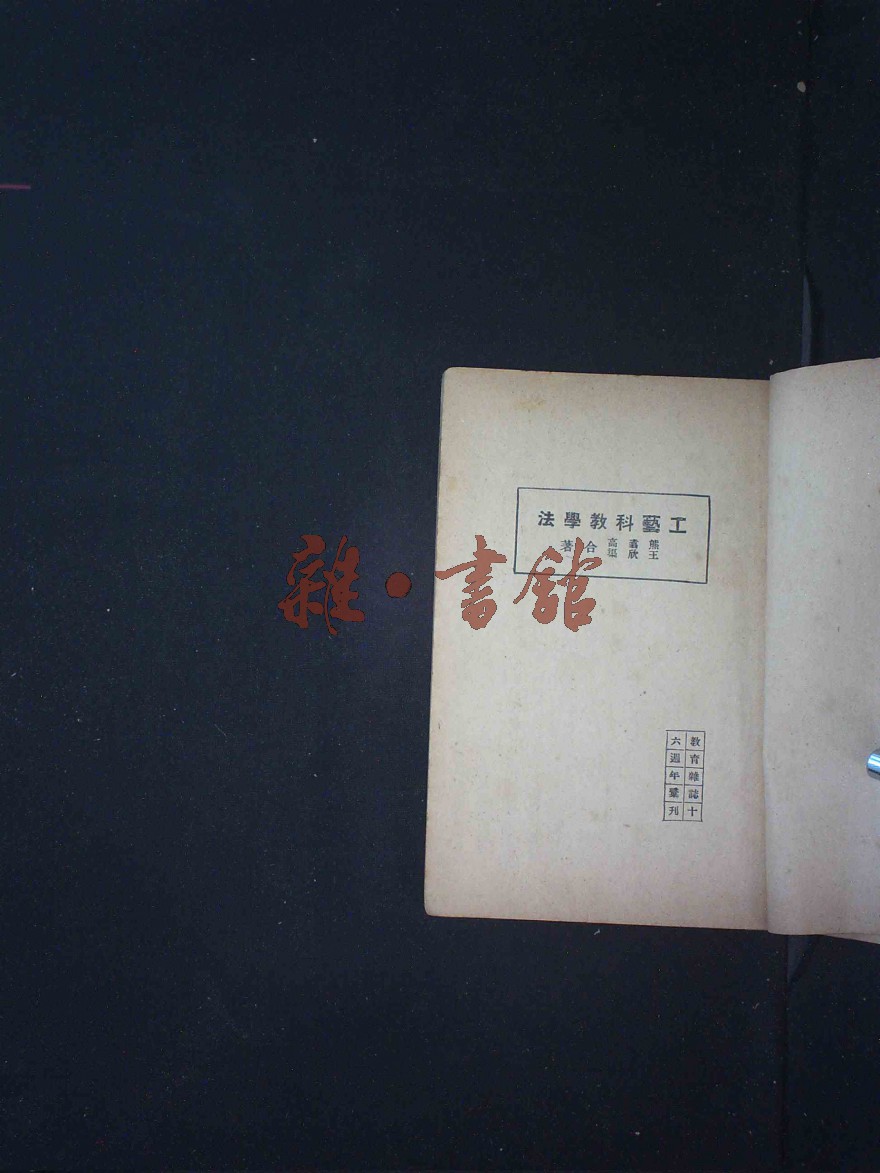 工藝科教學法
熊翥高
王欣渠
合著
教育雜誌十
六週年彙刊
雜·書館